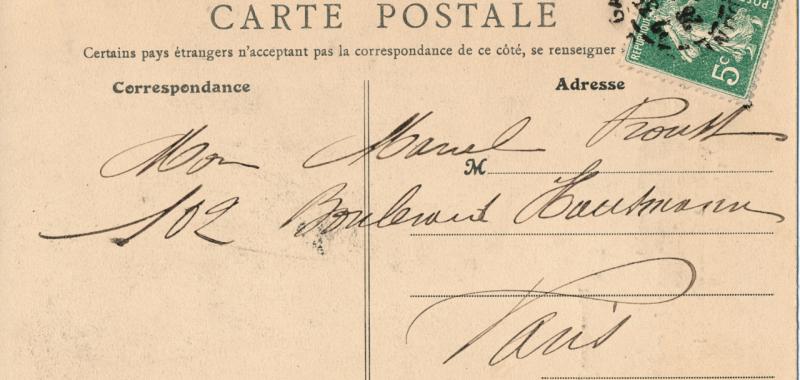 CARTE POSTALE
Certains pays étrangers n'acceptant pas la correspondance de ce côté, se renseigner
Correspondance
Adresse
Mon Marcel Proust
M
102 Boulevard Haussmann
Paris
5c